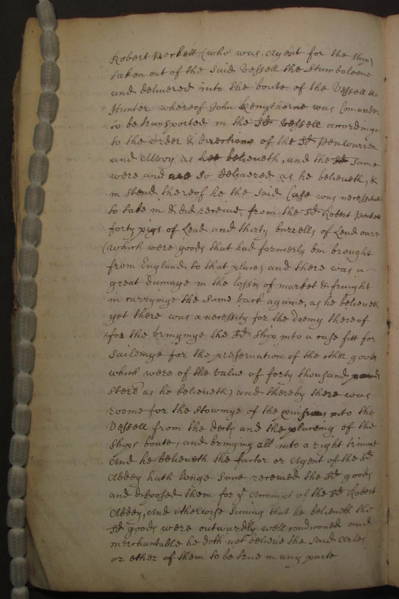 Robert (who was Agent for the ship)
taken out of the said Vessell the
and delivered into the boate of the Vessell the
Hunter whereof John was Comander
to be transported in the sd Vessell according
to the order & directions of the sd
and as hee beleiveth, and the sd same
were and so delivered as he beleiveth, &
in stead thereof he the said was necessitated
to take in & did receive from the sd Robert
forty pigs of Lead and thirty barrells of Lead oare
(which were goods that had formerly bin brought
from England to that place) and there was a
great dammage in the losse of market & fraight
in carrying the same back againe, as he beleiveth
yet there was a necessity for the doeing thereof
for the bringinge the sd ship into a case fitt for
saileinge for the preservation of the other goods
which were of the value of forty thousand
as he beleiveth) and thereby there was
roome for the stowage of the into the
Vessell from the and the placeing of the
ships boate, and bringing all into a right trimme
And he beleiveth the factor or Agent of the sd
Abbey hath longe since received the sd goods
and disposed them for ye Accompt of the sd Robert
Abbey, and otherwise saving that he beleiveth the
sd goods were outwardly well conditioned and
merchantable he doth not beleive the said
or either of them to be true in any parte